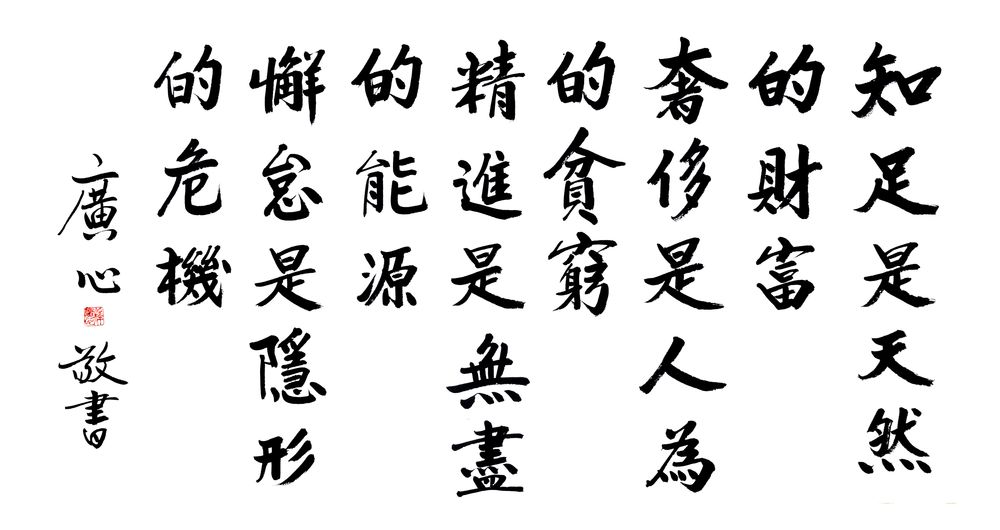 知足是天然
的財富
奢侈是人為
的貧窮
精進是無盡
的能源
懈怠是隱形
的危機
廣心敬書